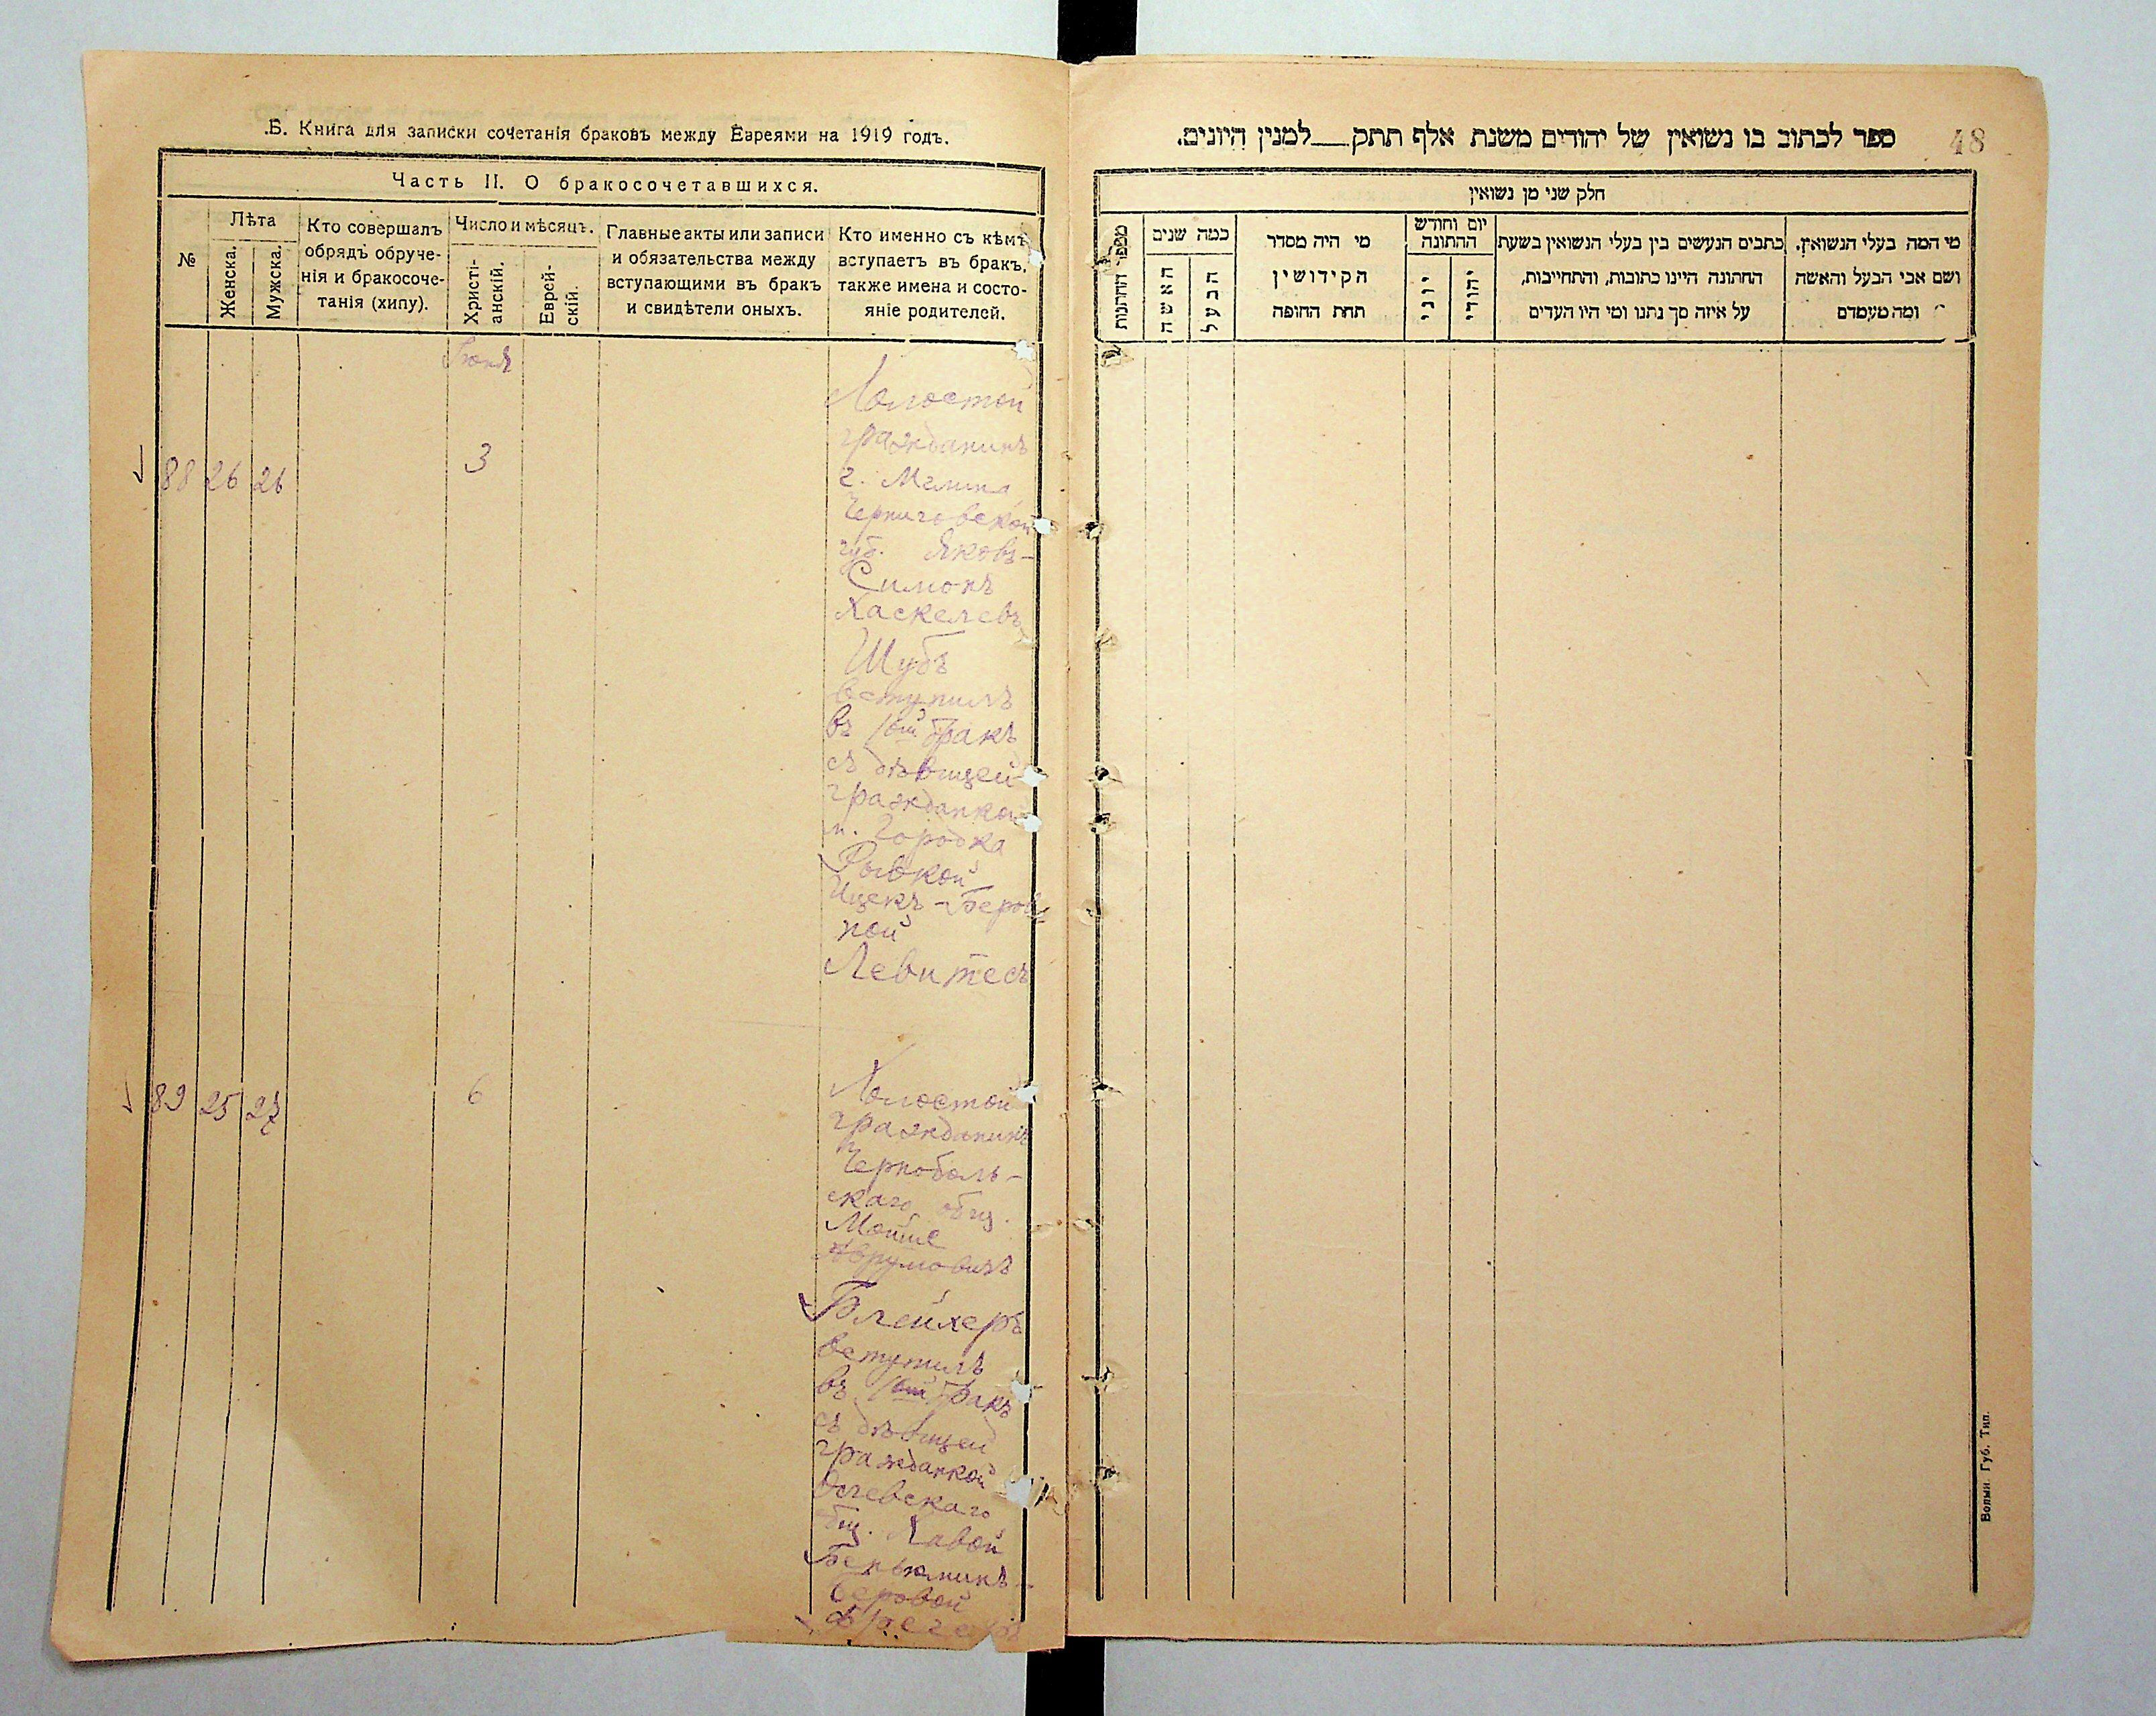 .Б. Книга для записки сочетанія браковъ между Евреями на 1919 годъ.
Часть II. О бракосочетавшихся.
№
Лѣта
Женска.
Мужска.
Кто совершалъ
обрядъ обруче-
нія и бракосоче-
танія (хипу).
Число и мѣсяцъ.
Христі-
анскій.
Еврей-
скій.
Главные акты или записи
и обязательства между
вступающими въ бракъ
и свидѣтели оныхъ.
Кто именно съ кѣмъ
вступаетъ въ бракъ,
также имена и состо-
яніе родителей.
88 26 26
3
Холостой
гражданинъ
г. Мглина
Черниговской
губ. Яковъ-
Симонъ
Хаскелевъ
Шубъ
вступилъ
въ 1ый бракъ
съ дѣвицей
гражданкой
м. Городка
Рывкой
Ицекъ-Беров-
ной
Левитесъ
89 25 27
6
Холостой
гражданинъ
Чернобыль-
скаго общ.
Мойше
Аврумовичъ
Блейхеръ
вступилъ
въ 1ый бракъ
съ дѣвицей
гражданкой
общ. Хавой
Беньюминъ-
Беровой
48
ספר לכתוב בו נשואין של יהודים משנת אלף תתק___למנין היונים.
חלק שני מן נשואין
מספר החתונות
כמה שנים
האשה
הבעל
מי היה מסדר
הקידושין
תחת החופה
יום וחודש
החתונה
יוני
יהודי
כתבים הנעשים בין בעלי הנשואין בשעת
החתונה היינו כתובות, והתחייבות,
על איזה סך נתנו ומי היו העדים
מי המה בעלי הנשואין,
ושם אבי הבעל והאשה
ומה מעמדם
Волын. Губ. Тип.